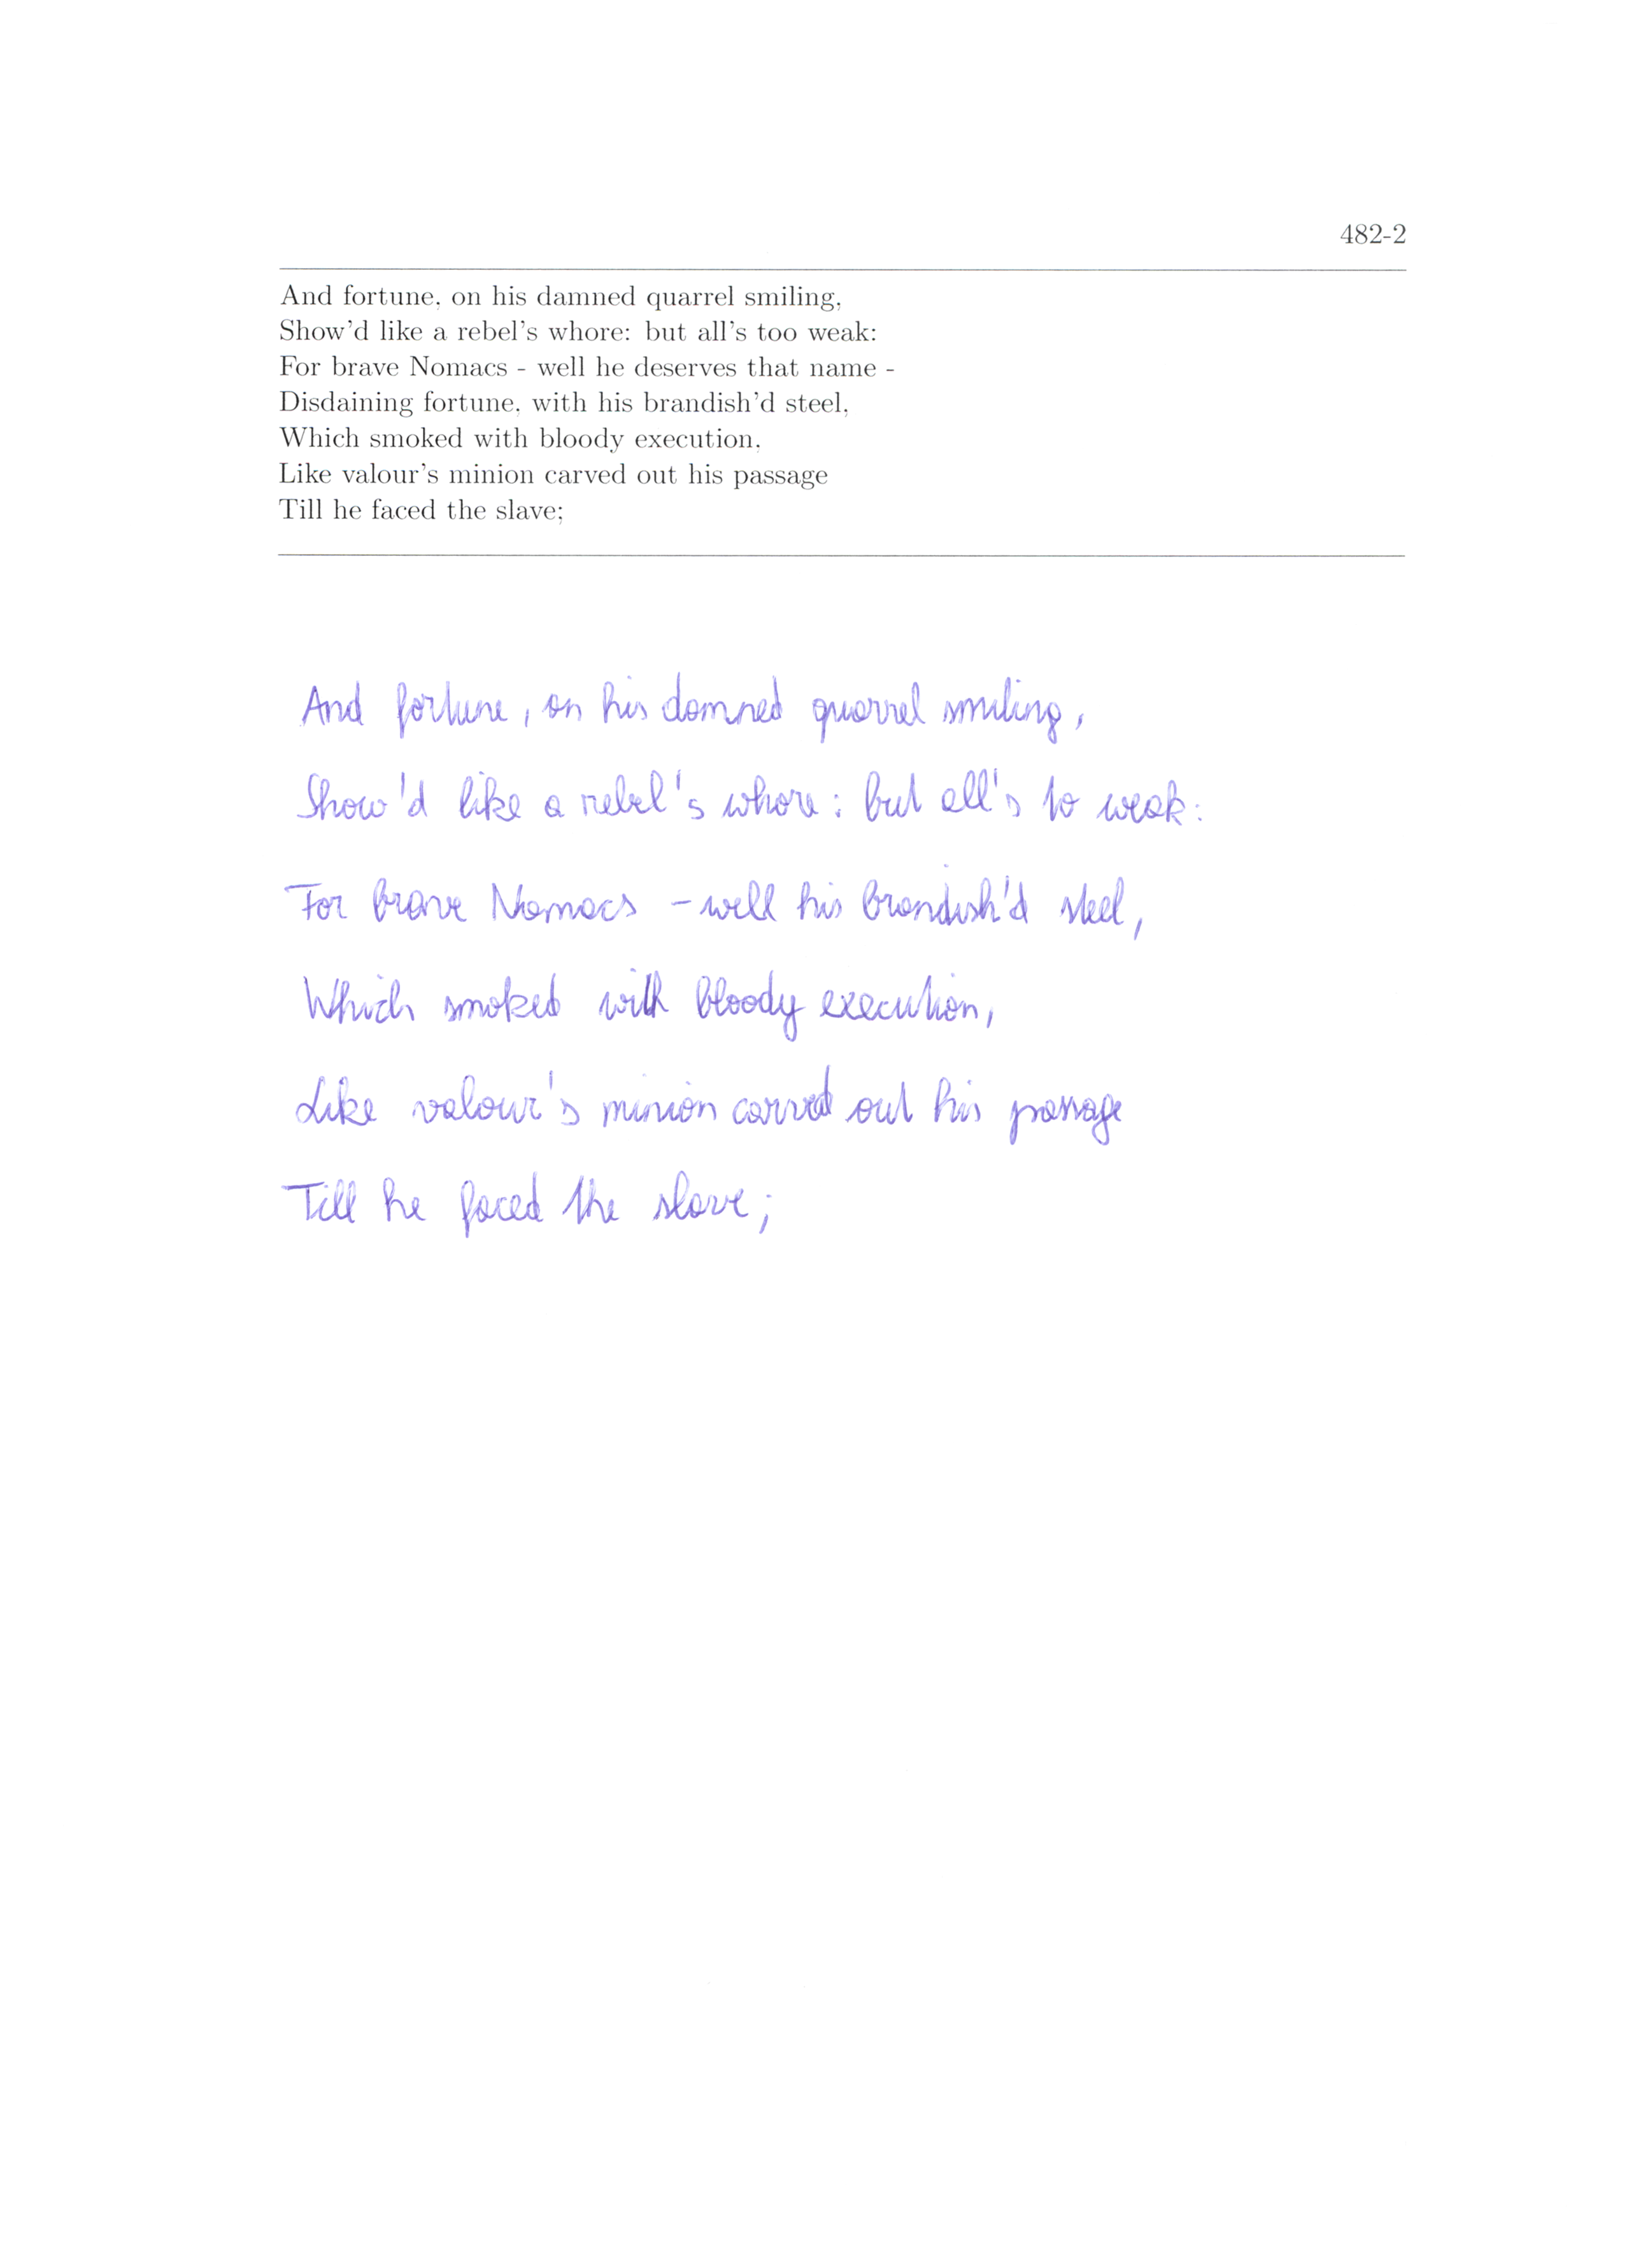 482-2
And fortune, on his damned quarrel smiling,
Show'd like a rebel's whore: but all's too weak:
For brave Nomacs - well he deserves that name -
Disdaining fortune, with his brandish'd steel,
Which smoked with bloody execution,
Like valour's minion carved out his passage
Till he faced the slave;
And fortune, on his damned quarrel smiling,
Show'd like a rebel's whore: but all's to weak:
For brave Nomacs - well his brandish'd steel,
Which smoked with bloody execution,
Like valour's minion carved out his passage
Till he faced the slave;